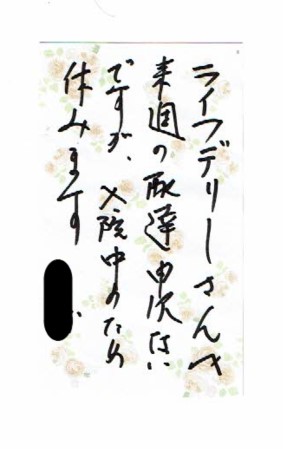 ライフデリーさんへ
来週の配達申訳ない
ですが、入院中のため
休みます